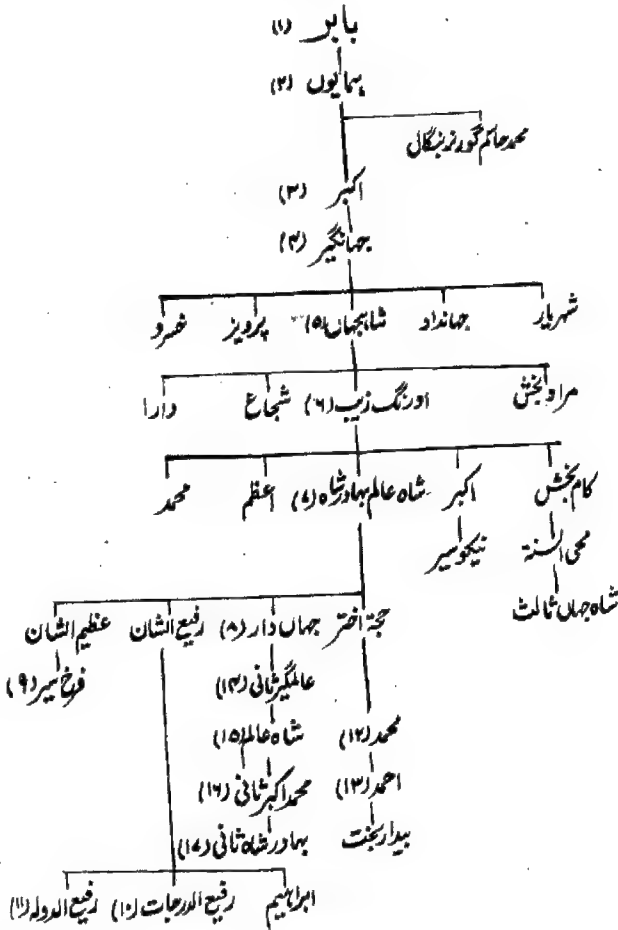 بابر (۱)
ہمایوں (۲)
محمد حاکم گورنر بنگال
اکبر (۳)
جہانگیر (۴)
شہریار جہانداد شاہجہاں (۵) پرویز خسرو
مراد بخش اورنگ زیب (۶) شجاع دارا
کام بخش اکبر شاہ عالم بہادر شاہ (۷) اعظم محمد
محی السنۃ نیکوسیر
شاہ جہاں ثالث
حجۃ اختر جہاں دار (۸) رفیع الشان عظیم الشان
عالمگیر ثانی (۱۴) فرخ سیر (۹)
محمد (۱۲) شاہ عالم (۱۵)
احمد (۱۳) محمد اکبر ثانی (۱۶)
بیدار بخت بہادر شاہ ثانی (۱۷)
ابراہیم رفیع الدرجات (۱۰) رفیع الدولہ (۱۱)